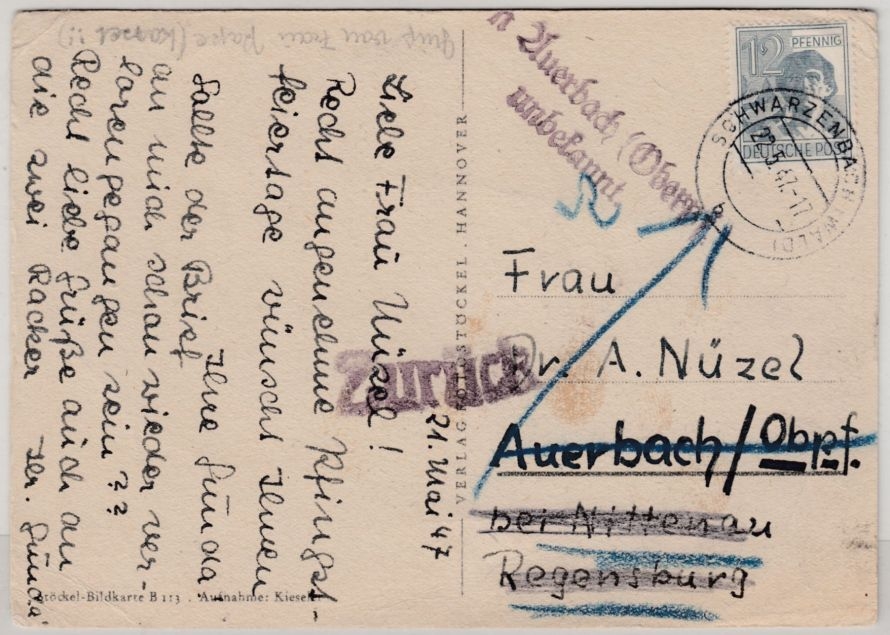 Gruß von Frau Pape (Kassel !!)
Liebe Frau Nüzel!
Recht angenehme Pfingst-
feiertage wünscht Ihnen
Ihre Gunda.
Sollte der Brief
an mich schon wieder ver-
lorengegangen sein??
Recht liebe Grüße auch an
die zwei Racker Ihr. Gunda.
21. Mai 47
Stöckel-Bildkarte B 113 . Aufnahme: Kiesel
VERLAG FOTO-STÖCKEL . HANNOVER
n Auerbach (Oberpf
unbekannt
Zurück
12 PFENNIG
DEUTSCHE POST
SCHWARZENBACH (WALD)
22.5.47.-17
Frau
Dr. A. Nüzel
Auerbach/Obpf.
bei Nittenau
Regensburg